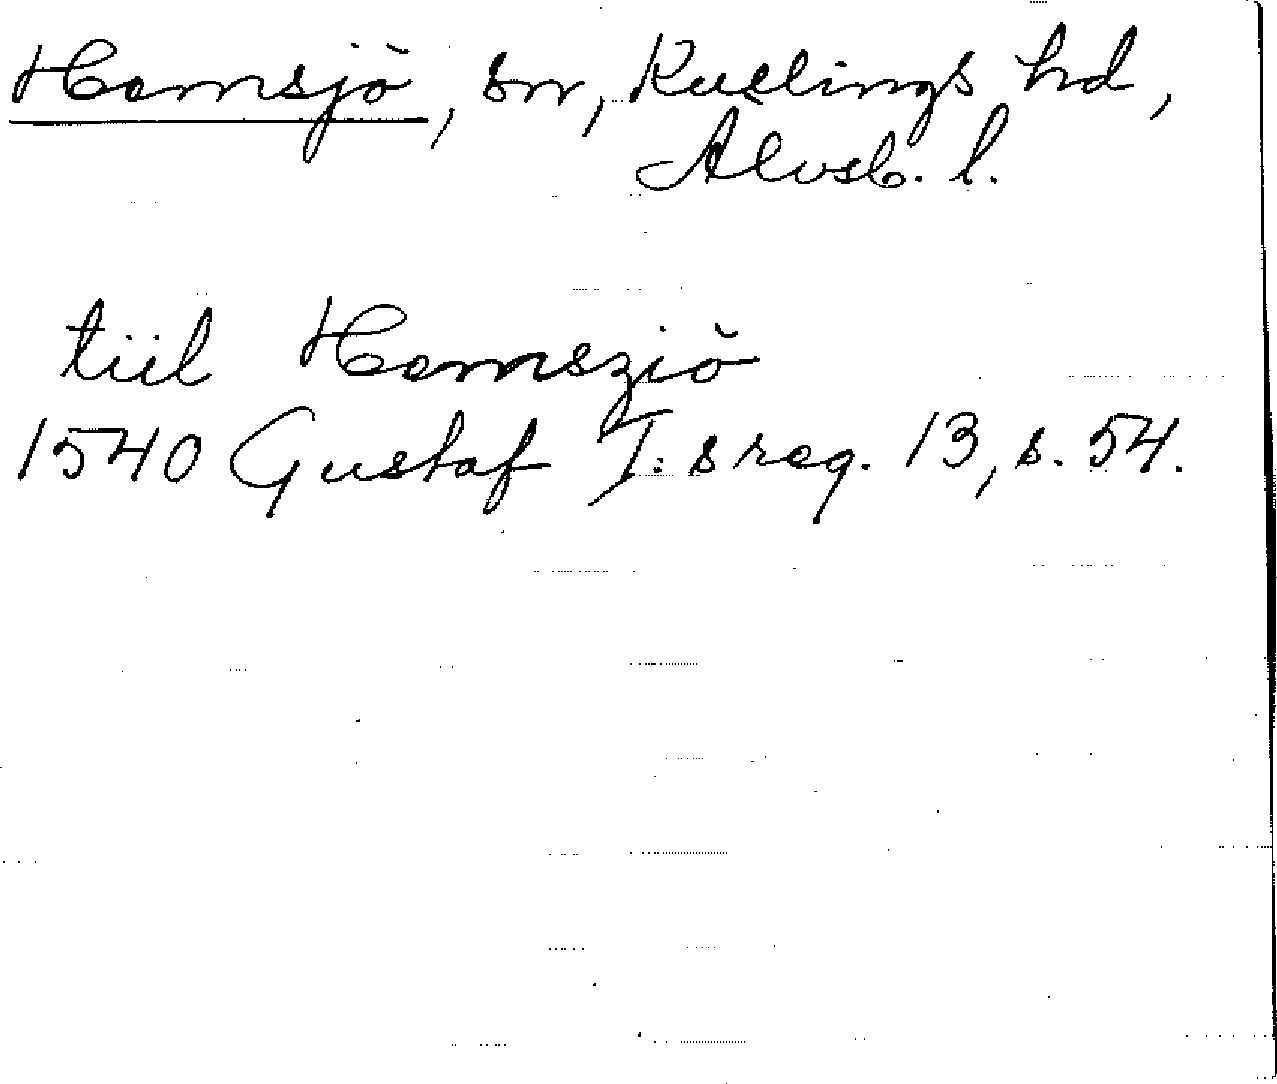 Hemsjö, sn, Kullings hd,
Älvsb. l.
tiil Hemsziö
1540 Gustaf I:s reg. 13, s. 54.